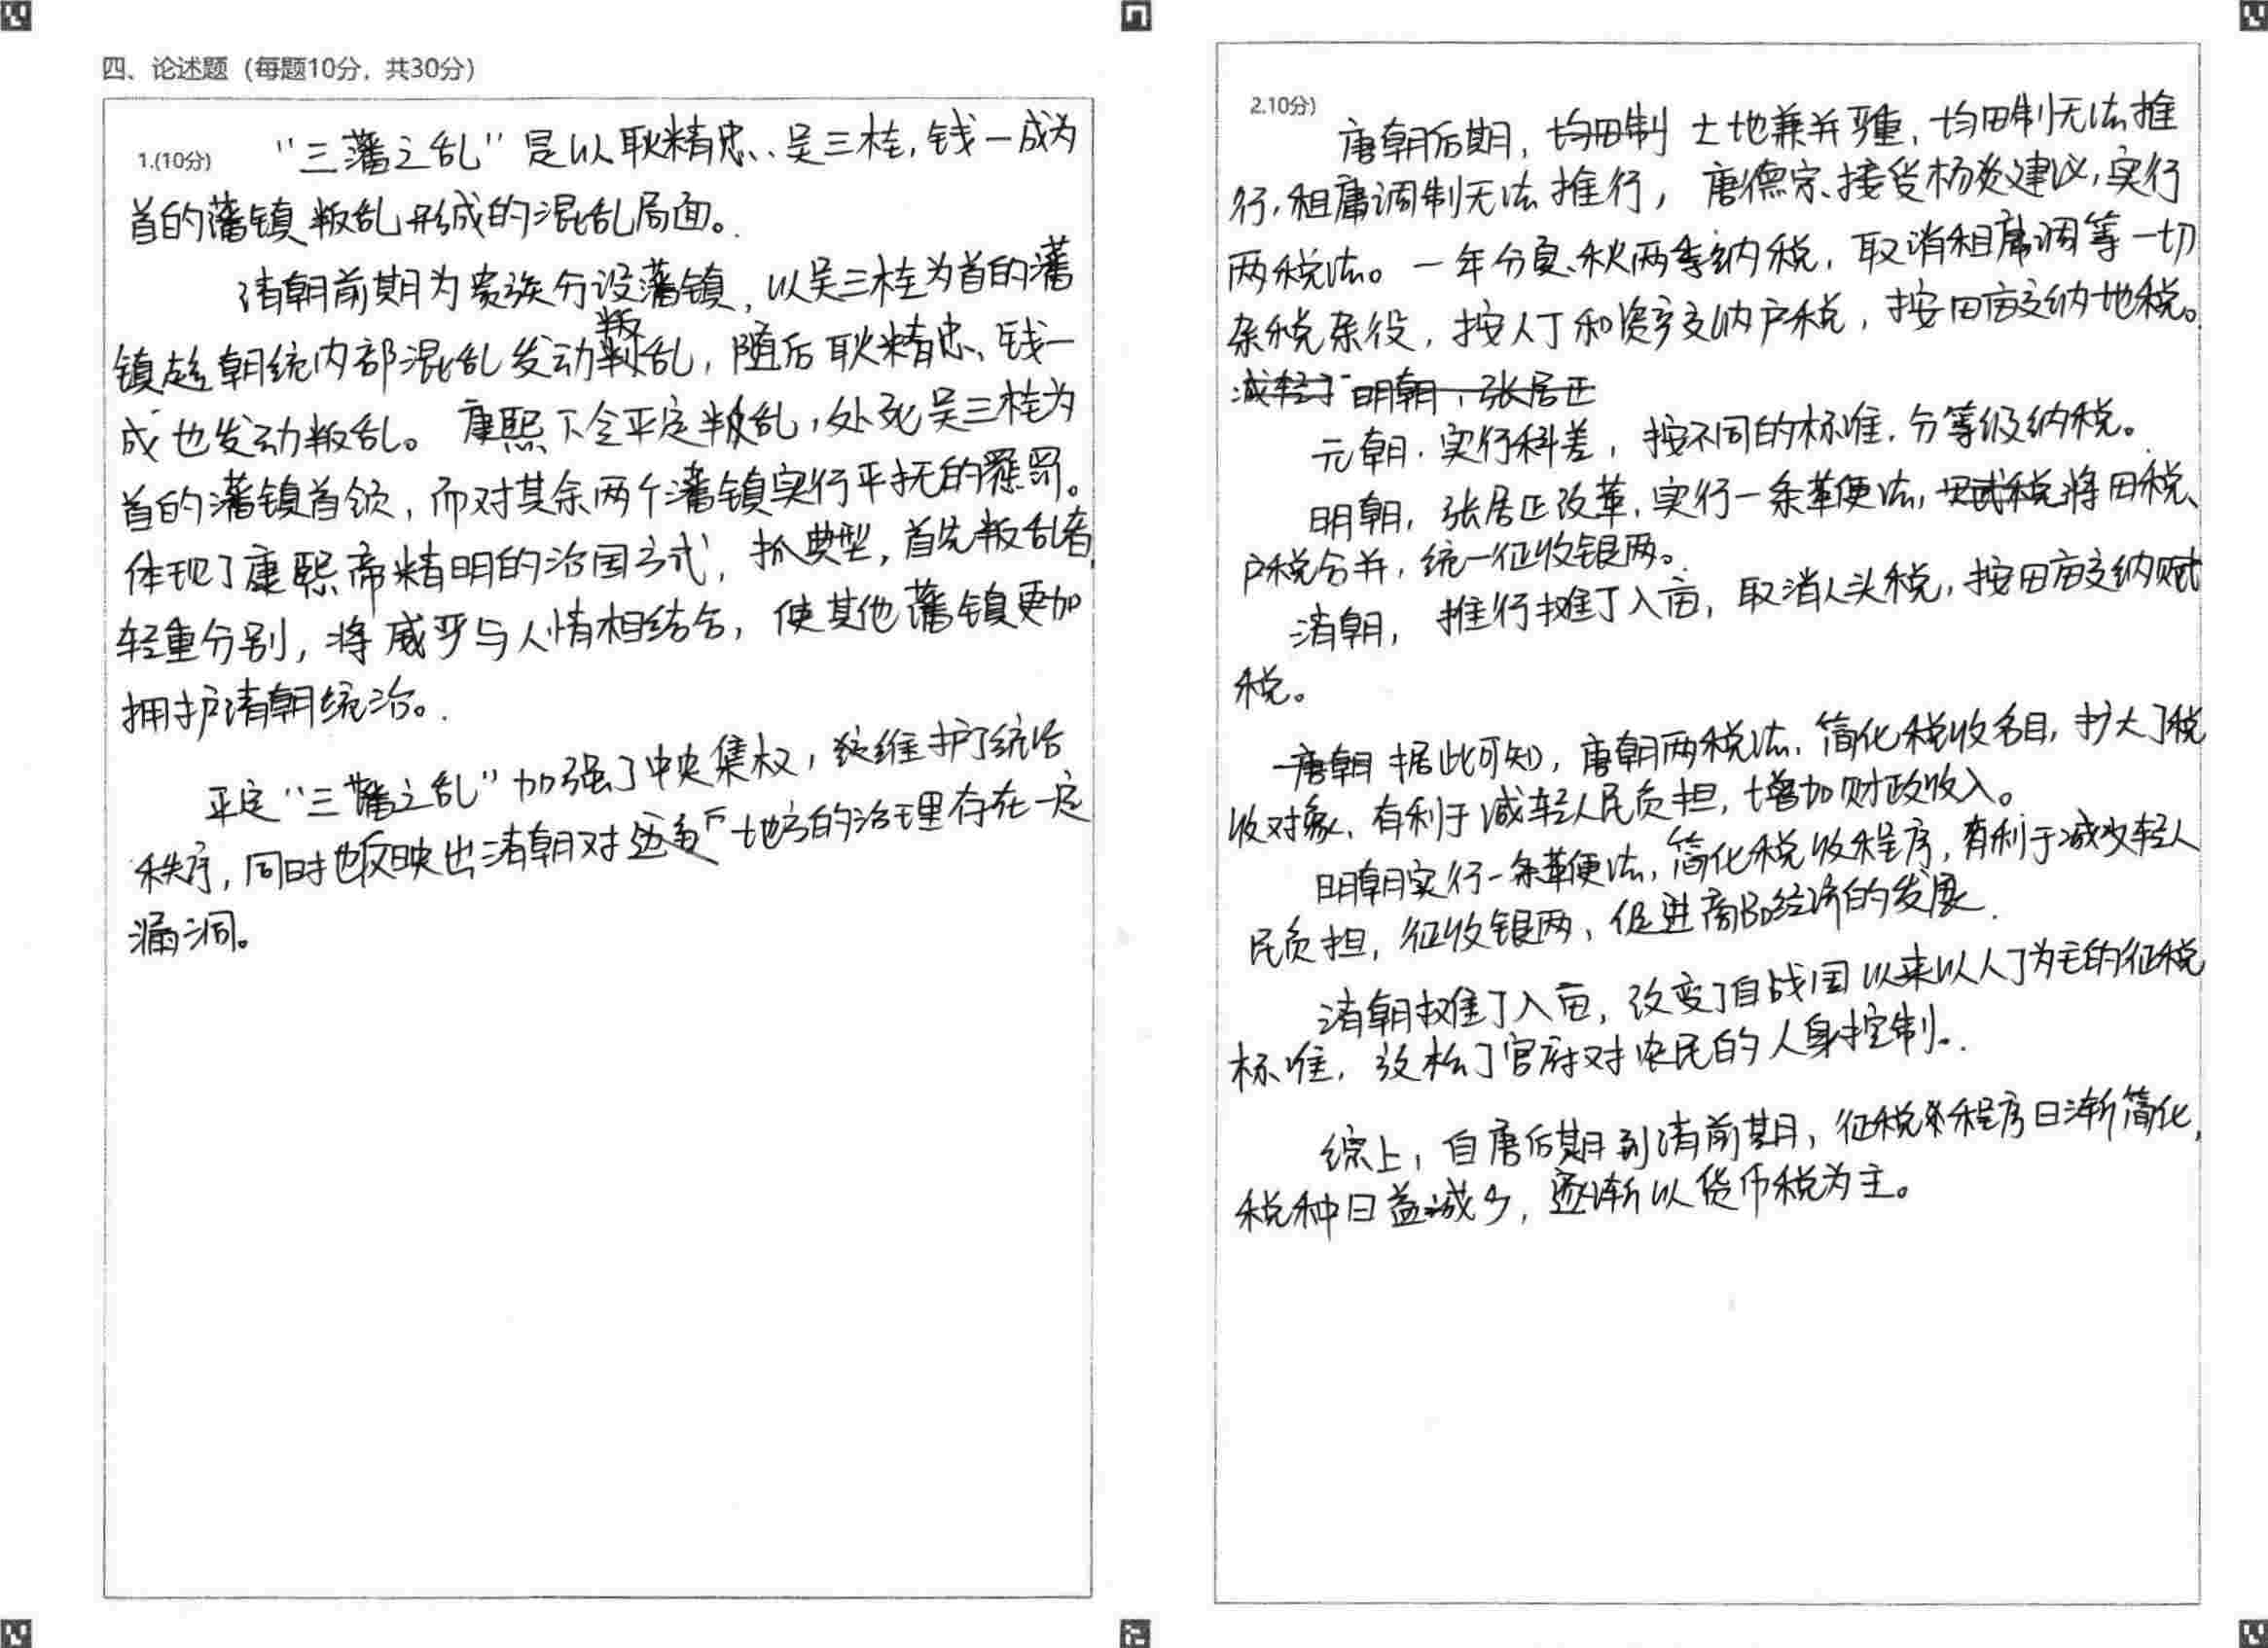 四、论述题（每题10分，共30分）
1.(10分) “三藩之乱”是以耿精忠、吴三桂，钱一成为
首的藩镇叛乱形成的混乱局面。
清朝前期为贵族分设藩镇，以吴三桂为首的藩
镇趁朝统内部混乱发动叛乱，随后耿精忠、钱一
成也发动叛乱。康熙下令平定叛乱，处死吴三桂为
首的藩镇首领，而对其余两个藩镇实行平抚的惩罚。
体现了康熙帝精明的治国方式，抓典型，首先叛乱者
轻重分别，将威严与人情相结合，使其他藩镇更加
拥护清朝统治。
平定“三藩之乱”加强了中央集权，维护了统治
秩序，同时也反映出清朝对地方的治理存在一定
漏洞。
2.10分)
唐朝后期，均田制 土地兼并严重，均田制无法推
行，租庸调制无法推行，唐德宗接受杨炎建议，实行
两税法。一年分夏、秋两季纳税，取消租庸调等一切
杂税杂役，按人丁和资产交纳户税，按田亩交纳地税。
减轻了 明朝，张居正
元朝，实行科差，按不同的标准，分等级纳税。
明朝，张居正改革，实行一条革便法，将田税、
户税合并，统一征收银两。
清朝，推行摊丁入亩，取消人头税，按田亩交纳赋
税。
唐朝 据此可知，唐朝两税法，简化税收名目，扩大了税
收对象，有利于减轻人民负担，增加财政收入。
明朝实行一条革便法，简化税收程序，有利于减少轻人
民负担，征收银两，促进商品经济的发展。
清朝摊丁入亩，改变了自战国以来以人丁为主的征税
标准，放松了官府对农民的人身控制。
综上，自唐后期到清前期，征税程序日渐简化，
税种日益减少，逐渐以货币税为主。